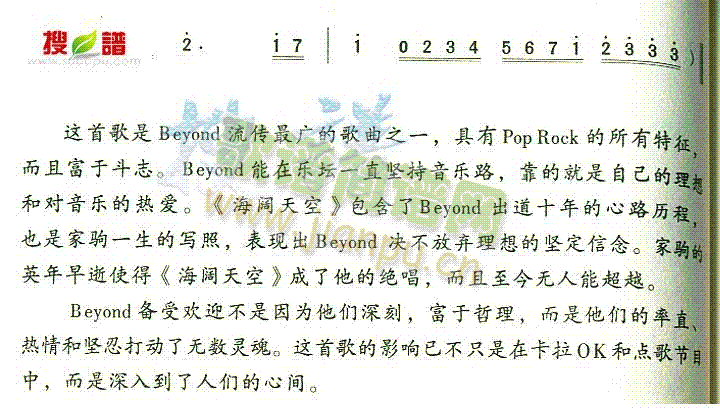 搜 譜
www.sooopu.com
2. 1 7 | 1 0 2 3 4 5 6 7 1 2 3 3 3 )
这首歌是 Beyond 流传最广的歌曲之一，具有 Pop Rock 的所有特征，
而且富于斗志。Beyond 能在乐坛一直坚持音乐路，靠的就是自己的理想
和对音乐的热爱。《海阔天空》包含了 Beyond 出道十年的心路历程，
也是家驹一生的写照，表现出 Beyond 决不放弃理想的坚定信念。家驹的
英年早逝使得《海阔天空》成了他的绝唱，而且至今无人能超越。
Beyond 备受欢迎不是因为他们深刻，富于哲理，而是他们的率直、
热情和坚忍打动了无数灵魂。这首歌的影响已不只是在卡拉 OK 和点歌节目
中，而是深入到了人们的心间。